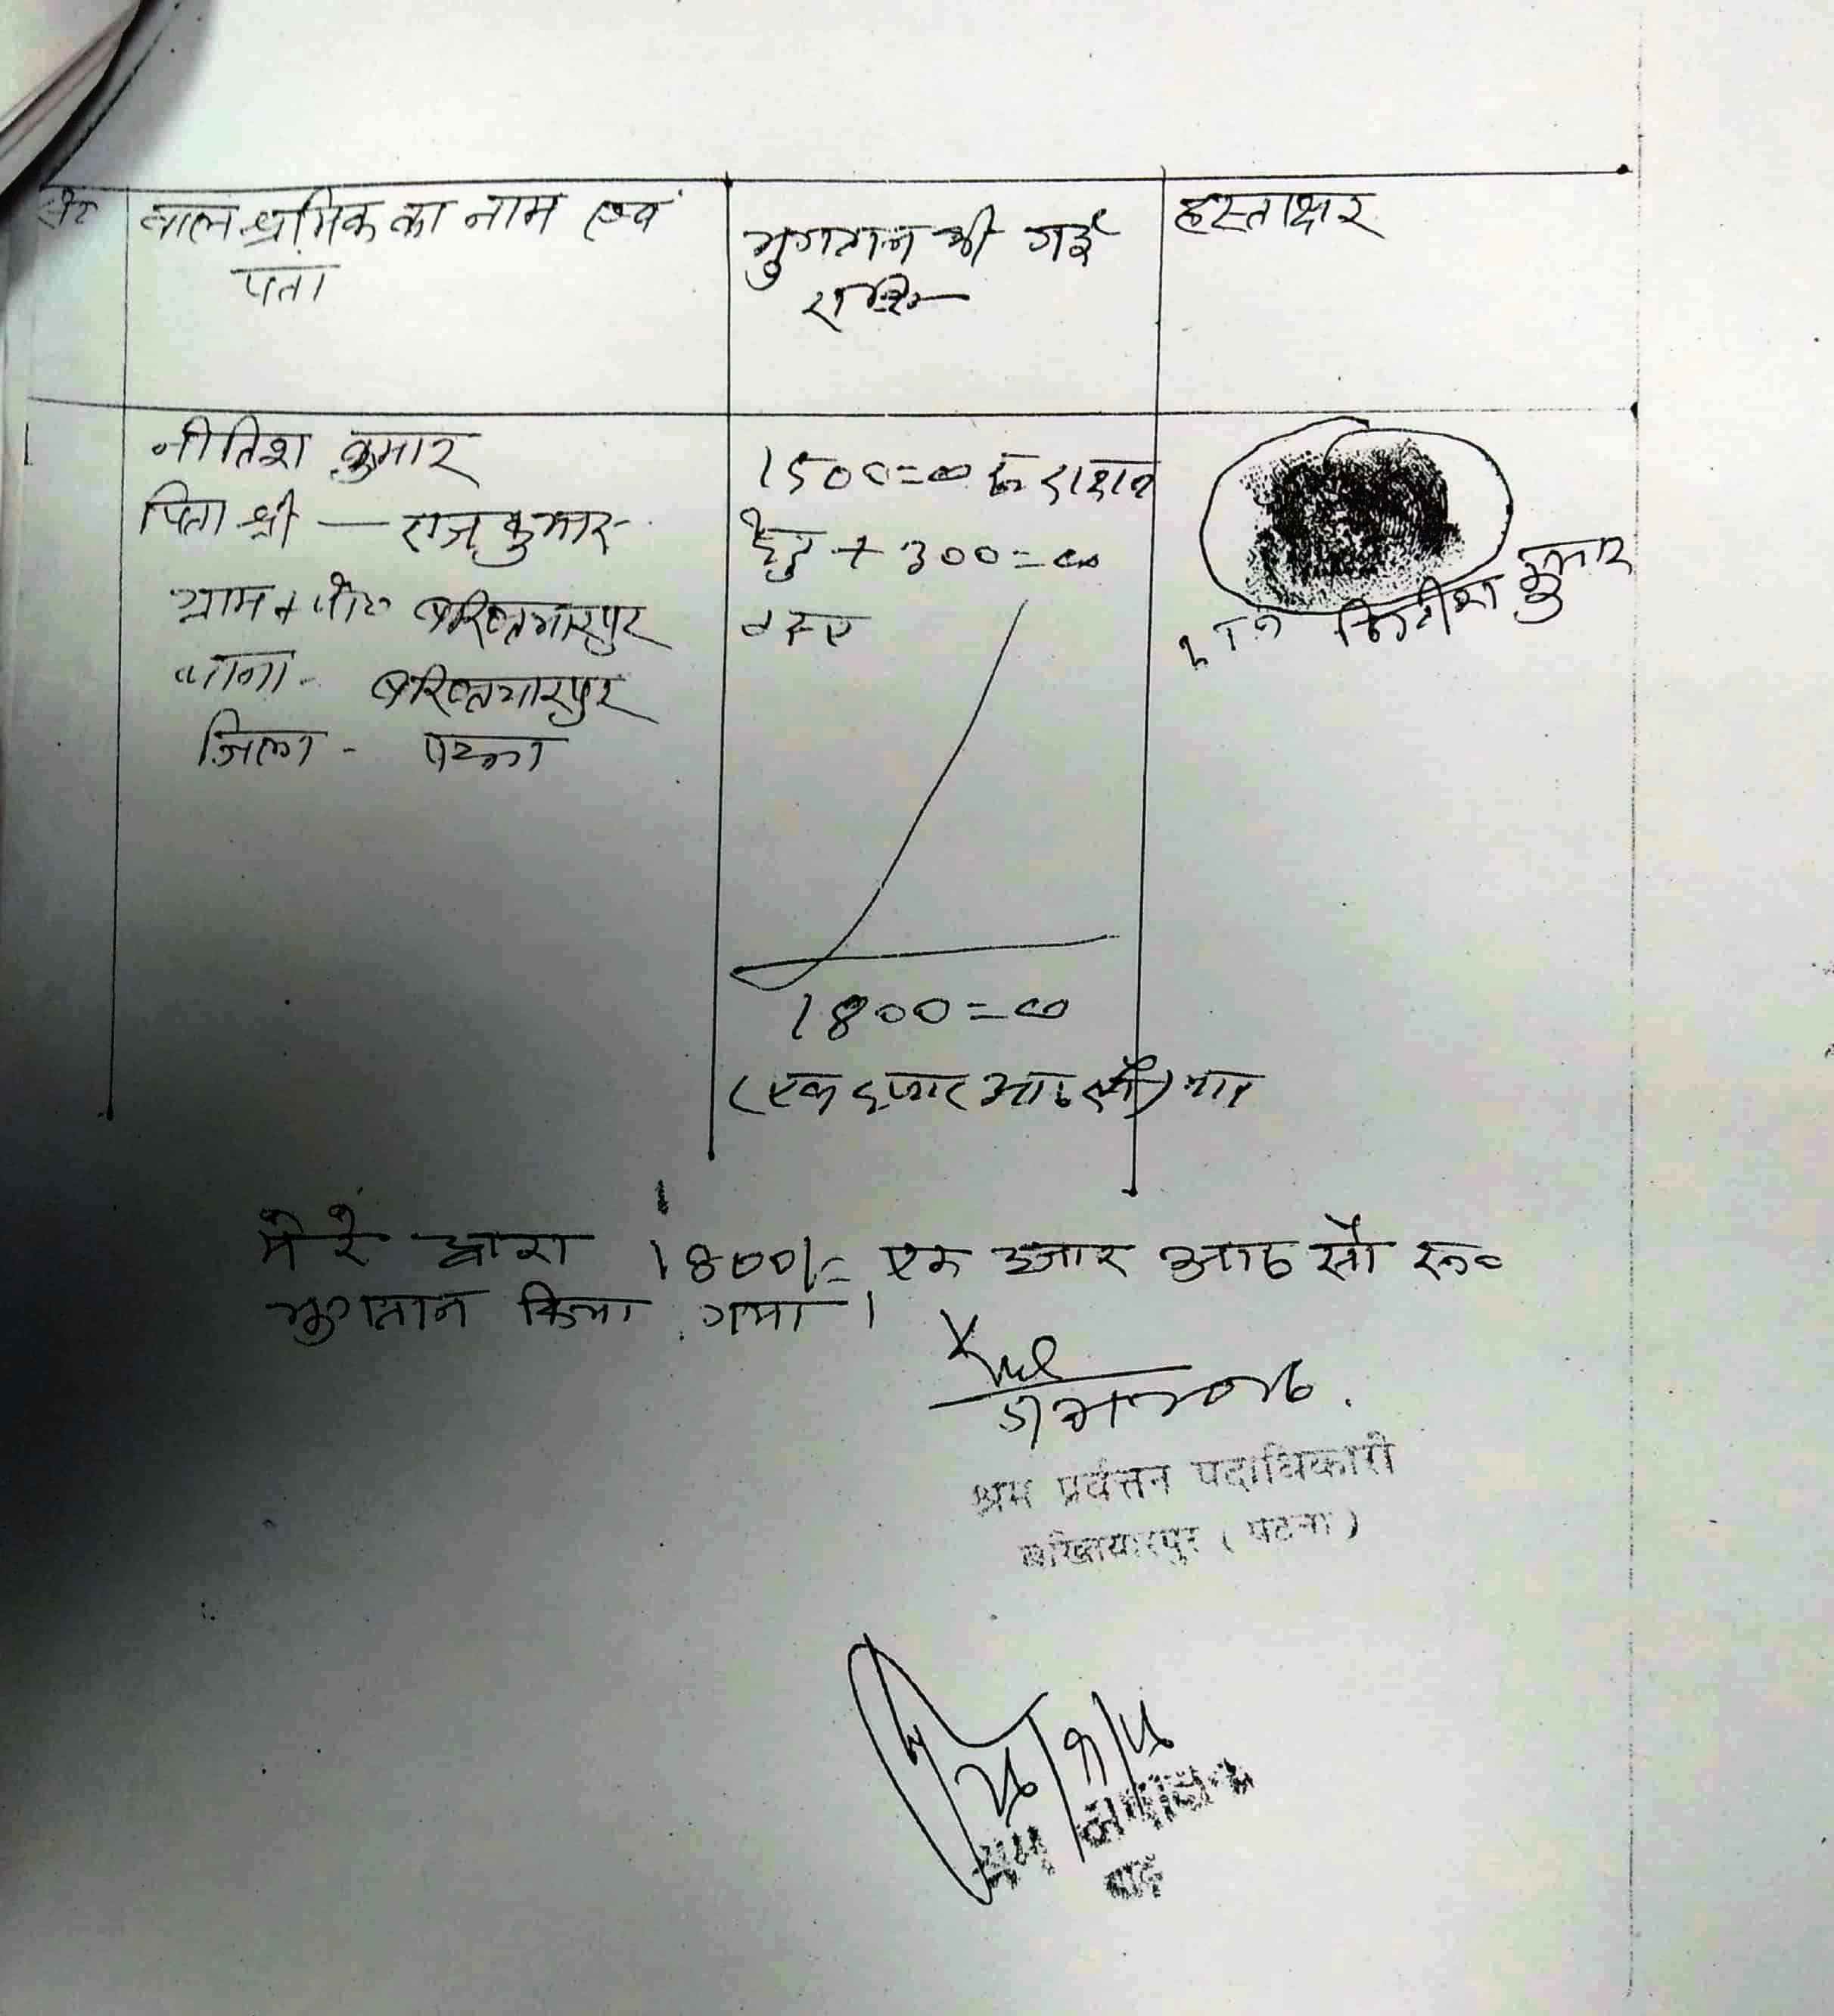 बाल श्रमिक का नाम एवं
पता
भुगतान की गई
राशि
हस्ताक्षर
1
नीतिश कुमार
पिता श्री — राजकुमार
ग्राम + पो० बख्तियारपुर
थाना - बख्तियारपुर
जिला - पटना
1500=00 रू राशन
हेतु + 300=00
वस्त्र
1800=00
(एक हजार आठ सौ) मात्र
कुमार
मेरे द्वारा 1800/= एक हजार आठ सौ रू०
भुगतान किया गया ।
श्रम प्रर्वत्तन पदाधिकारी
बख्तियारपुर ( पटना )
बाढ़